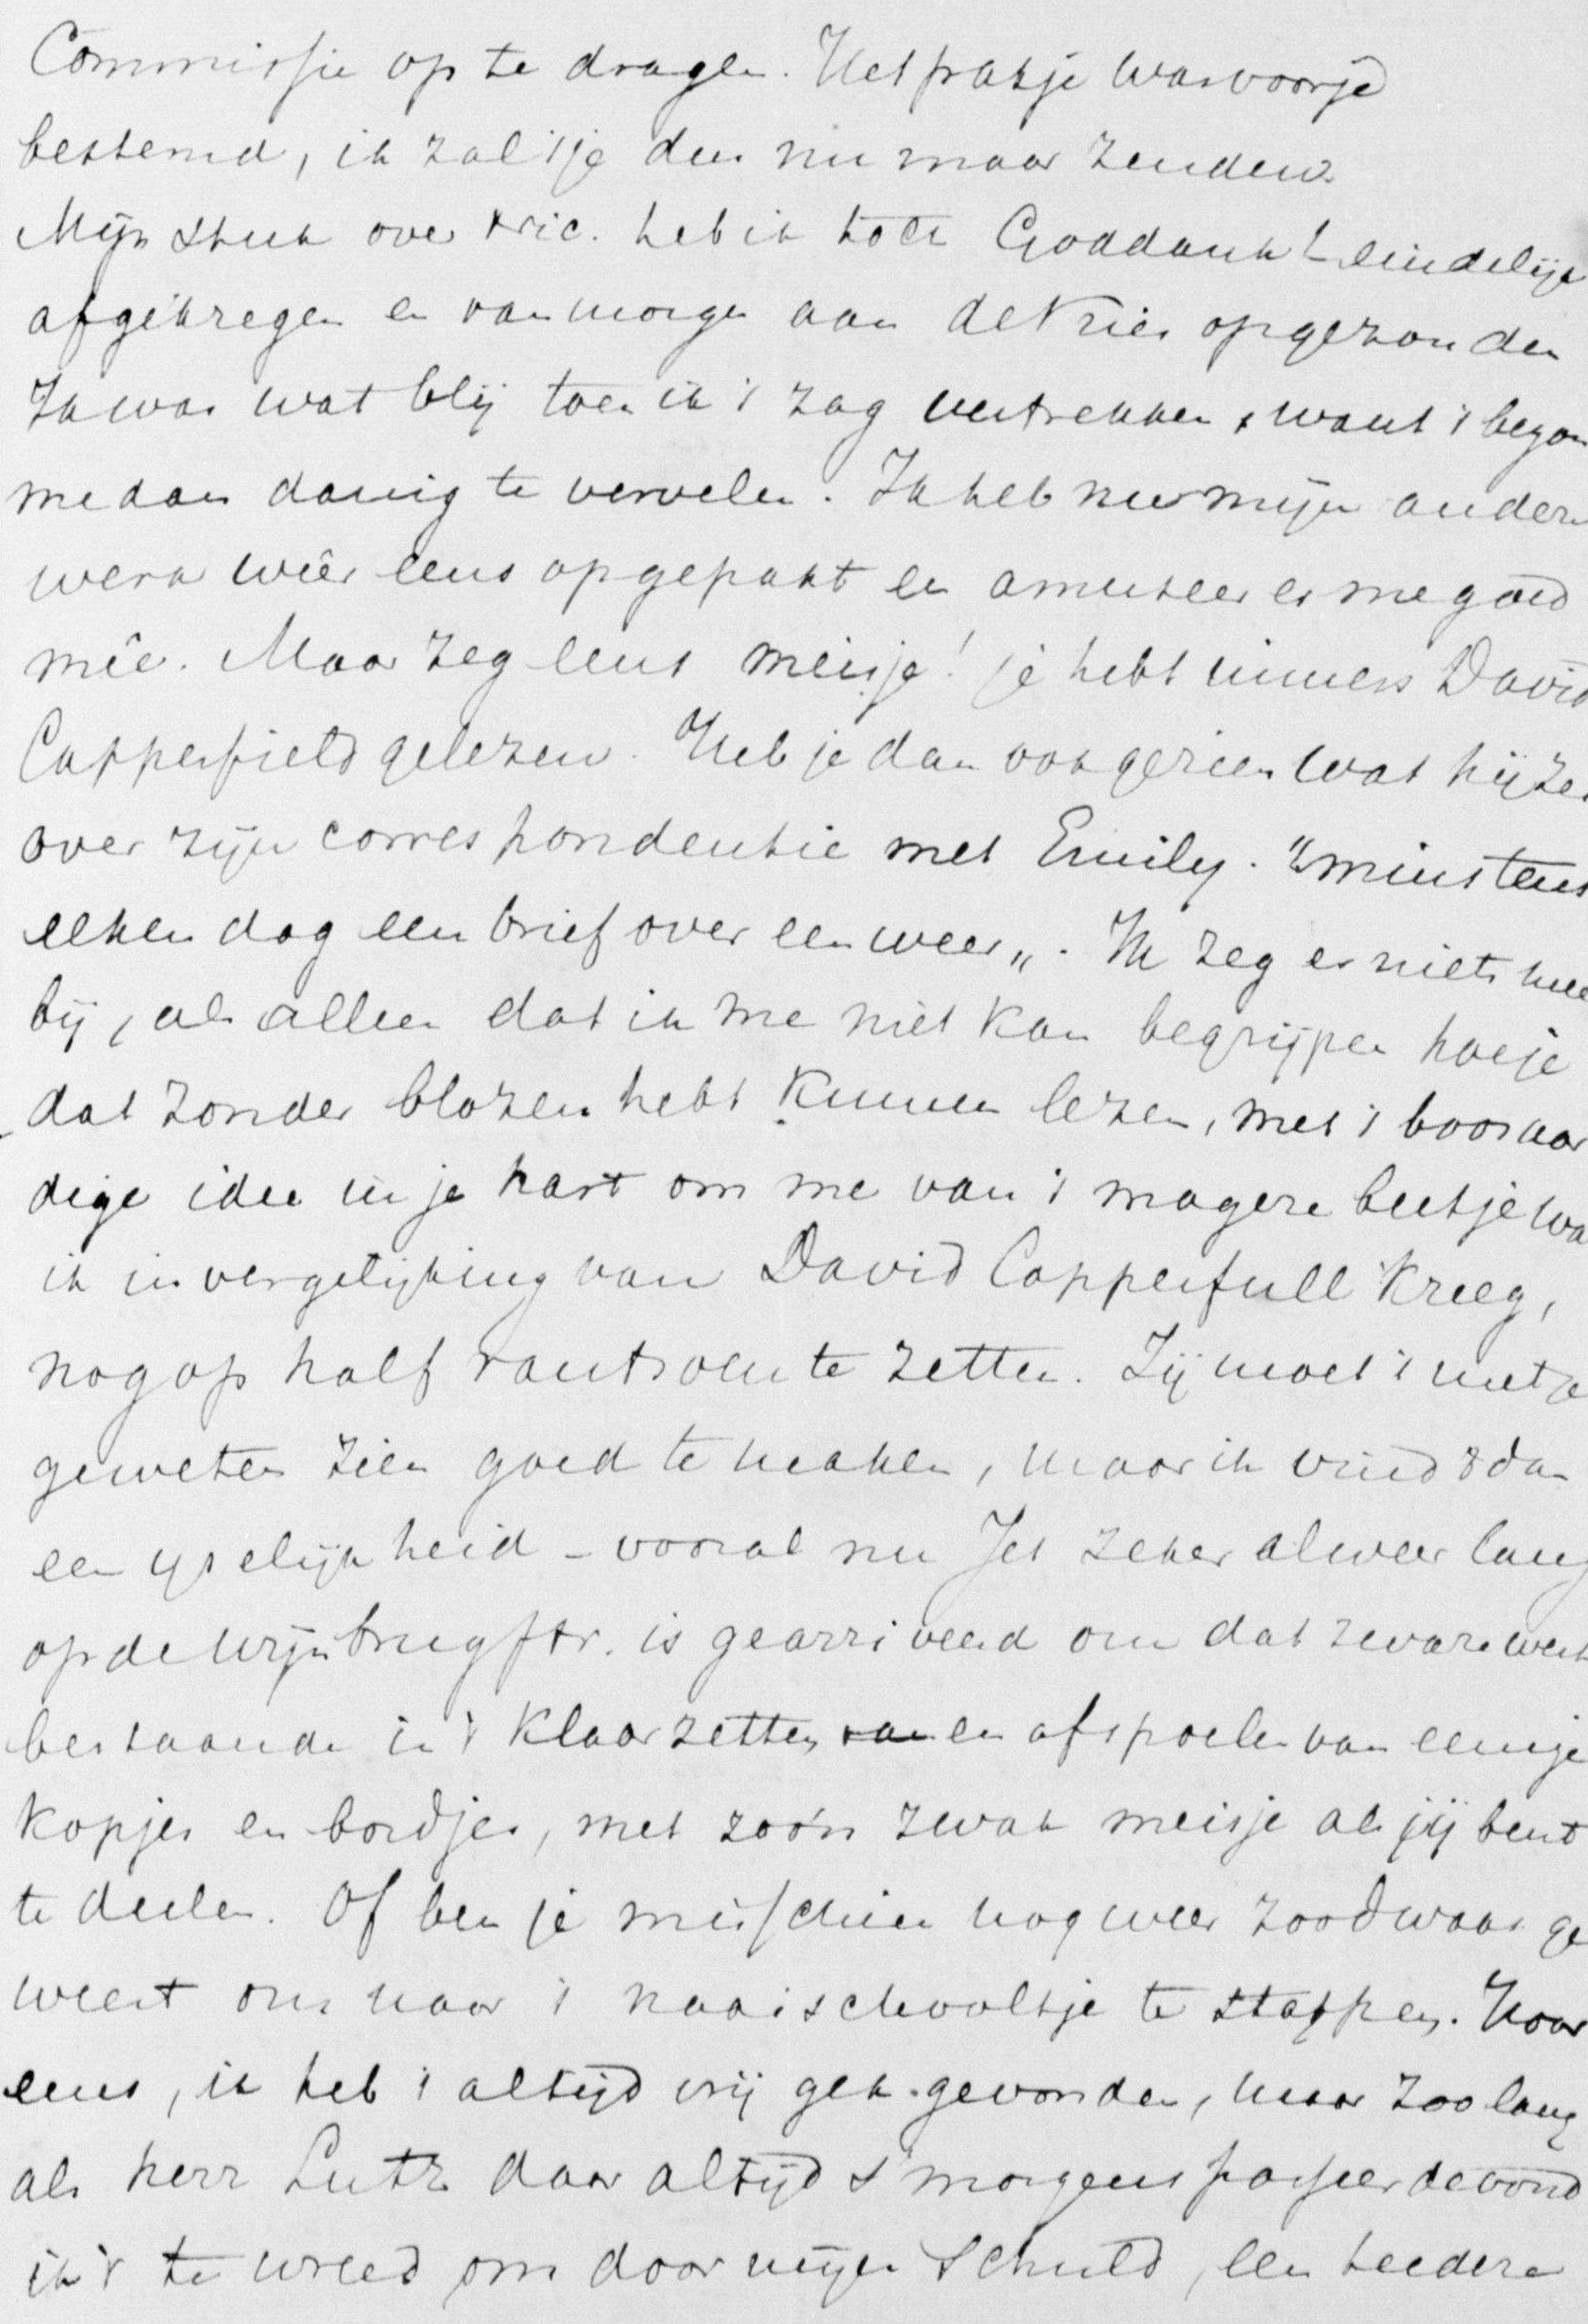 Commissie op te dragen. Het pakje was voor je
bestemd, ik zal 't je dus nu maar zenden.
Mijn stuk over ric. heb ik toch Goddank! eindelijk
afgekregen en van morgen aan de Vries opgezonden
Ik was wat blij toen ik 't zag vertrekken, want 't begon
me dan danig te vervelen. Ik heb nu mijn ander
werk wêer eens opgepakt en amuseer er me goed
mêe. Maar zeg eens meisje! je hebt immers David
Copperfield gelezen. Heb je dan ook gezien wat hij zei
over zijn correspondentie met Emily. "minstens
elken dag een brief over en weer". Ik zeg er niets mee
bij, als alleen dat ik me niet kan begrijpen hoe je
dat zonder blozen hebt kunnen lezen, met 't boosaar
dige idee in je hart om me van 't magere beetje wa
ik in vergelijking van David Copperfull kreeg,
nog op half rantsoen te zetten. Zij moet 't met je
geweten zien goed te maken, maar ik vind 't dan
een ijselijkheid - vooral nu Jet zeker alweer lang
op de Wijnbrugstr. is gearriveerd om dat zware werk
bestaande in 't klaarzetten van en afspoelen van eenige
kopjes en bordjes, met zoo'n zwak meisje als jij bent
te deelen. Of ben je misschien nog weer zoo dwaas ge
weest om naar 't naaischooltje te stappen. Hoor
eens, ik heb 't altijd vrij gek gevonden, maar zoo lang
als herr Lutz daar altijd s'morgens passeerde vond
ik 't te wreed om door mijn schuld, een teedere